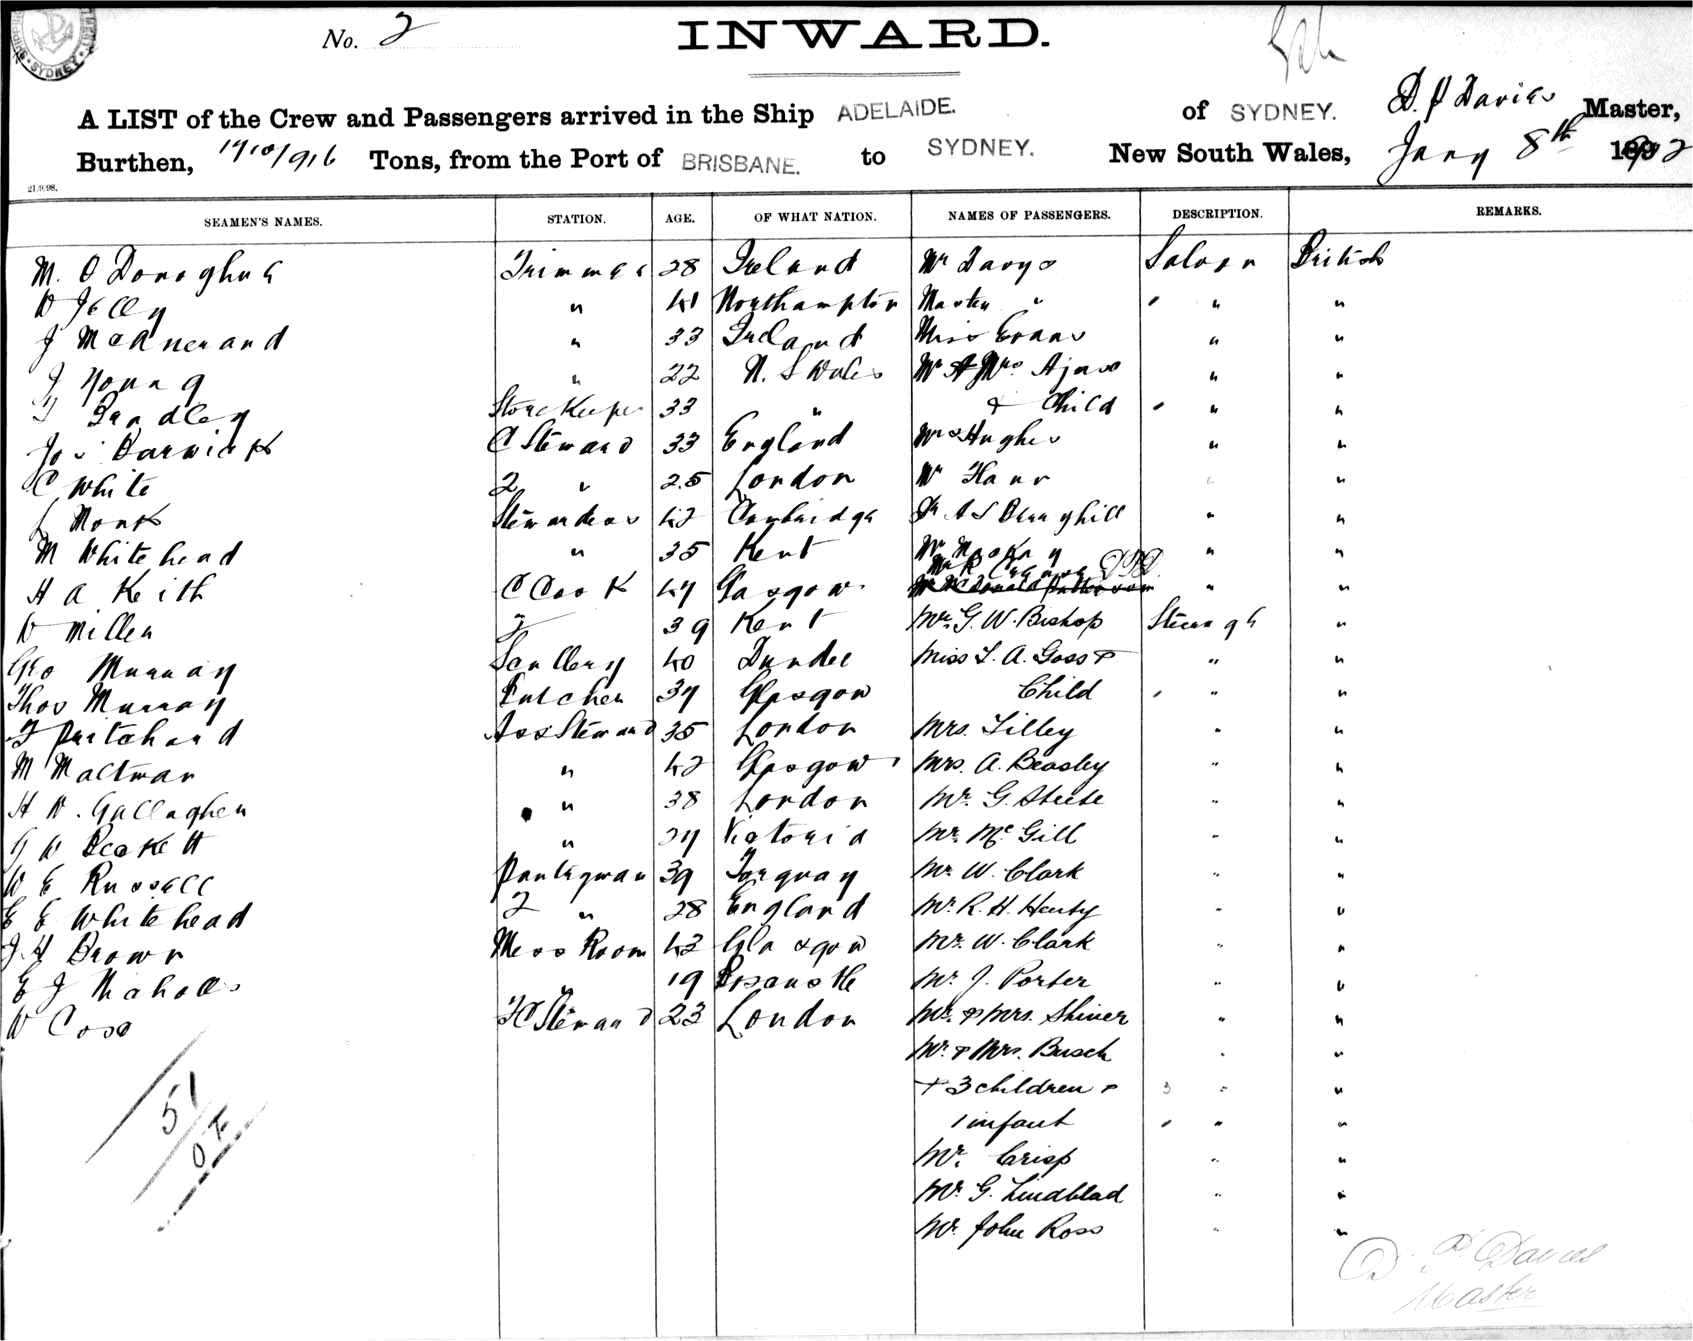 No. 2 INWARD.
A LIST of the Crew and Passengers arrived in the Ship ADELAIDE. of SYDNEY. D. P Davies Master,
Burthen, 1910/916 Tons, from the Port of BRISBANE. to SYDNEY. New South Wales, Jany 8th 1902
21.9.98.
SEAMEN'S NAMES. STATION. AGE. OF WHAT NATION. NAMES OF PASSENGERS. DESCRIPTION. REMARKS.
M. O Donoghue Trimmer 28 Ireland Mr Davys Saloon British
W Jelly " 41 Northampton Master " " "
J McAnerand " 33 Ireland Miss Evans " "
J Young " 22 N. S Wales Mr & Mrs Ajax " "
T Bradley StoreKeeper 33 " & Child " "
Jos Barwick C Steward 33 England Mrs Hughes " "
C White 2 " 25 London Mr "
L Monk Stewardess 42 Cambridge " "
M Whitehead " 35 Kent Mr " "
H A Keith C Cook 47 Glasgow Mr R " "
W Miller 2 39 Kent Mr. G. W. Bishop Steerage "
Geo Murray Scullery 40 Dundee Miss L. A. Goss & " "
Thos Murray Butcher 37 Glasgow Child " "
T Pritchard Ass Steward 35 London Mrs. Lilley " "
M Maltman " 42 Glasgow Mrs. A. Beasley " "
H W. Gallagher " 38 London Mr. G. Steele " "
G W Beckett " 27 Victoria Mr. McGill " "
W E Russell Pantryman 39 Torquay Mr W. Clark " "
E E Whitehead 2 " 28 England Mr. R. H. Henty " "
J. H Brown Mess Room 43 Glasgow Mr. W. Clark " "
E J Nicholls " 19 Mr. J. Porter " "
W Coso FC Steward 23 London Mr. & Mrs. Shiner " "
Mr. & Mrs. Busch " "
+ 3 children & 3 " "
1 infant " "
Mr. Crisp " "
Mr. G. Lindblad " "
Mr. John Ross " "
51
D. P Davies
Master